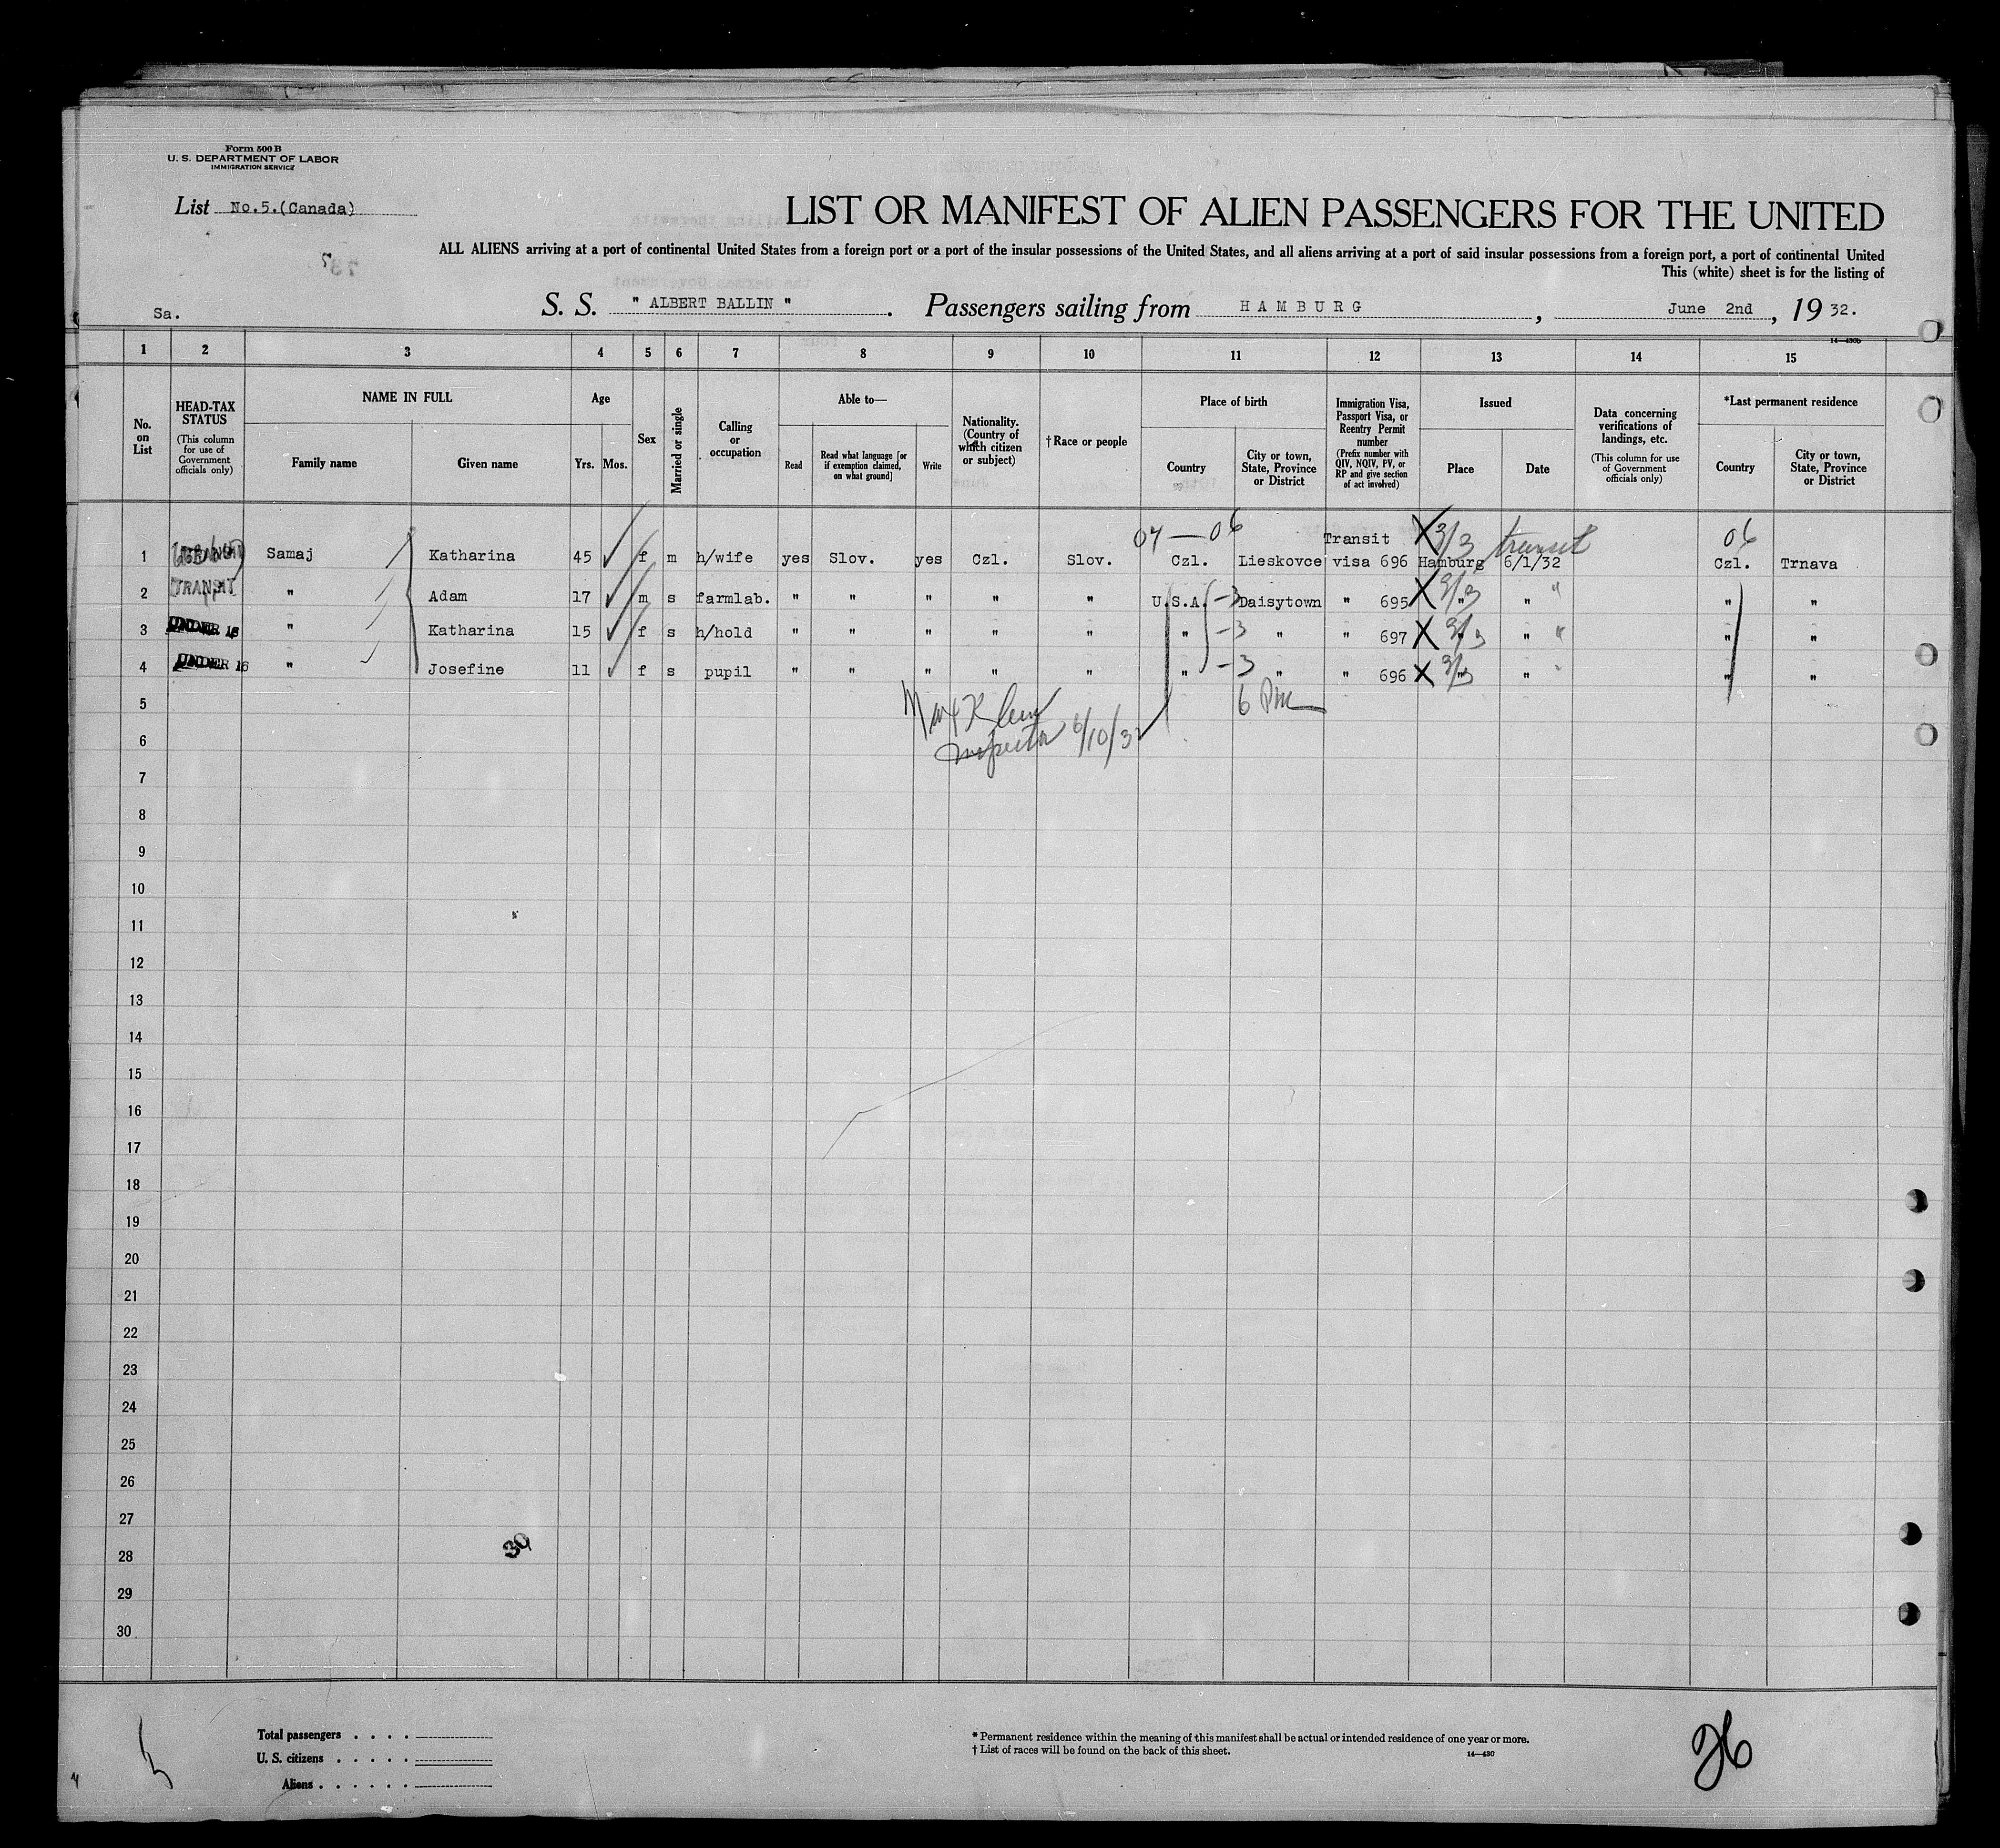 Form 500 B
U. S. DEPARTMENT OF LABOR
IMMIGRATION SERVICE
List No.5.(Canada)
LIST OR MANIFEST OF ALIEN PASSENGERS FOR THE UNITED
ALL ALIENS arriving at a port of continental United States from a foreign port or a port of the insular possessions of the United States, and all aliens arriving at a port of said insular possessions from a foreign port, a port of continental United
This (white) sheet is for the listing of
Sa. S. S. " ALBERT BALLIN " . Passengers sailing from HAMBURG , June 2nd , 19 32.
14—430b
1 2 3 4 5 6 7 8 9 10 11 12 13 14 15
No. on List
HEAD-TAX STATUS (This column for use of Government officials only)
NAME IN FULL
Family name
Given name
Age
Yrs. Mos.
Sex
Married or single
Calling or occupation
Able to—
Read
Read what language [or if exemption claimed, on what ground]
Write
Nationality. (Country of which citizen or subject)
† Race or people
Place of birth
Country
City or town, State, Province or District
Immigration Visa, Passport Visa, or Reentry Permit number (Prefix number with QIV, NQIV, PV, or RP and give section of act involved)
Issued
Place
Date
Data concerning verifications of landings, etc. (This column for use of Government officials only)
*Last permanent residence
Country
City or town, State, Province or District
04 — 06 Transit X 3/3 transit 06
1 TRANSIT Samaj Katharina 45 f m h/wife yes Slov. yes Czl. Slov. Czl. Lieskovce visa 696 Hamburg 6/1/32 Czl. Trnava
2 TRANSIT " Adam 17 m s farmlab. " " " " " U.S.A. -3 Daisytown " 695 X 3/3 " " " " "
3 UNDER 16 " Katharina 15 f s h/hold " " " " " " -3 " " 697 X 3/3 " " " " "
4 UNDER 16 " Josefine 11 f s pupil " " " " " " -3 " " 696 X 3/3 " " " " "
5 6 PM
6 Inspector 6/10/32
7
8
9
10
11
12
13
14
15
16
17
18
19
20
21
22
23
24
25
26
27
28
29
30
30
Total passengers . . . .
U. S. citizens . . . . .
Aliens . . . . . .
* Permanent residence within the meaning of this manifest shall be actual or intended residence of one year or more.
† List of races will be found on the back of this sheet.
14—430
36